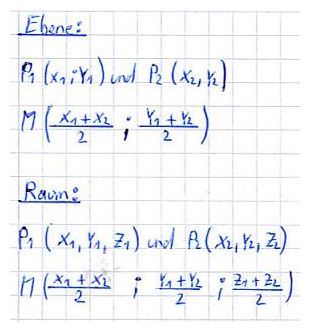 Ebene:
P₁ (x₁; y₁) und P₂ (x₂, y₂)
M ( (x₁ + x₂)/2 ; (y₁ + y₂)/2 )
Raum:
P₁ (x₁, y₁, z₁) und P₂ (x₂, y₂, z₂)
M ( (x₁ + x₂)/2 ; (y₁ + y₂)/2 ; (z₁ + z₂)/2 )